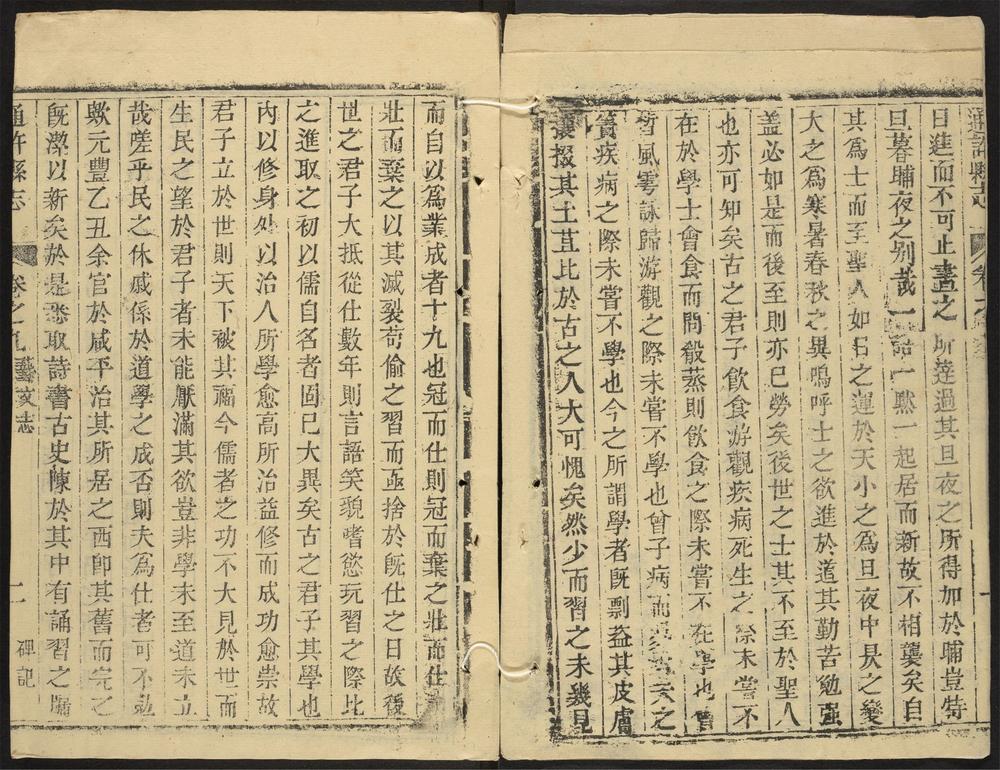 通許縣志 卷之
日進而不可止晝之所蓬過其旦夜之所得加於晡豈特
旦暮晡夜之别哉一語一默一起居而新故不相襲矣自
其爲士而至聖人如日之運於天小之爲旦夜中昃之變
大之爲寒暑春秋之異嗚呼士之欲進於道其勤苦勉强
蓋必如是而後至則亦已勞矣後世之士其不至於聖人
也亦可知矣古之君子飲食游觀疾病死生之際未嘗不
在於學士會食而問殽蒸則飲食之際未嘗不在學也曾
晳風雩詠歸游觀之際未嘗不學也曾子病而 之
簀疾病之際未嘗不學也今之所謂學者旣剽盜其皮膚
掇其土苴比於古之人大可愧矣然少而習之未幾見
而自以爲業成者十九也冠而仕則冠而棄之壯而仕
壯而棄之以其滅裂苟偷之習而亟捨於旣仕之日故後
世之君子大抵從仕數年則言語笑貌嗜慾玩習之際比
之進取之初以儒自名者固已大異矣古之君子其學也
内以修身处以治人所學愈高所治益修而成功愈崇故
君子立於世則天下被其福今儒者之功不大見於世而
生民之望於君子者未能厭滿其欲豈非學未至道未立
哉嗟乎民之休戚係於道學之成否則夫爲仕者可不勉
歟元豐乙丑余官於咸平治其所居之西卽其舊而完之
旣潔以新矣於是悉取詩書古史陳於其中有誦習之牖
通許縣志 卷之九 藝文志 二 碑記